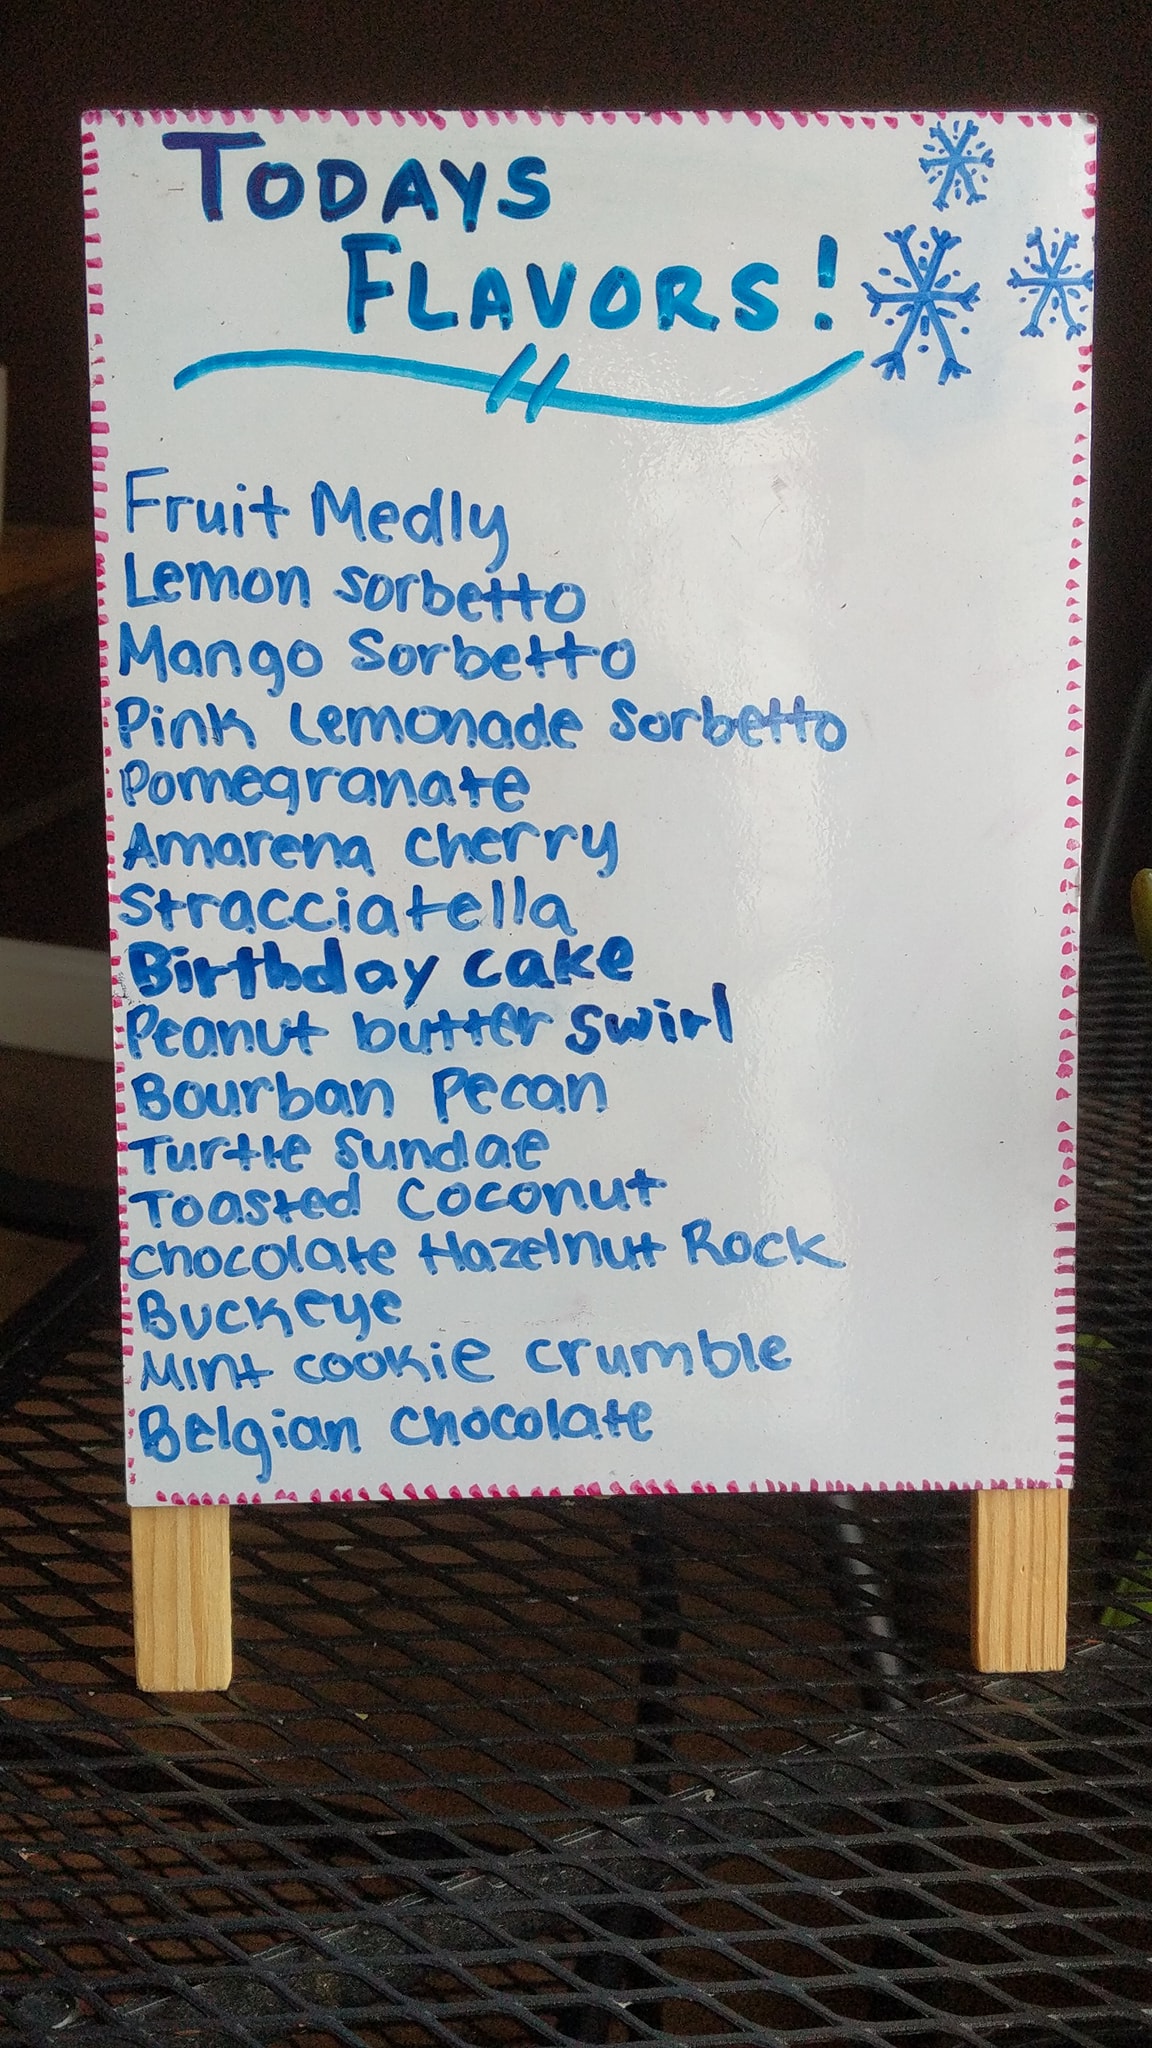 TODAYS
FLAVORS!
Fruit Medly
Lemon Sorbetto
Mango Sorbetto
Pink Lemonade Sorbetto
Pomegranate
Amarena Cherry
Stracciatella
Birthday cake
Peanut butter swirl
Bourban Pecan
Turtle Sundae
Toasted Coconut
Chocolate Hazelnut Rock
Buckeye
Mint cookie crumble
Belgian Chocolate